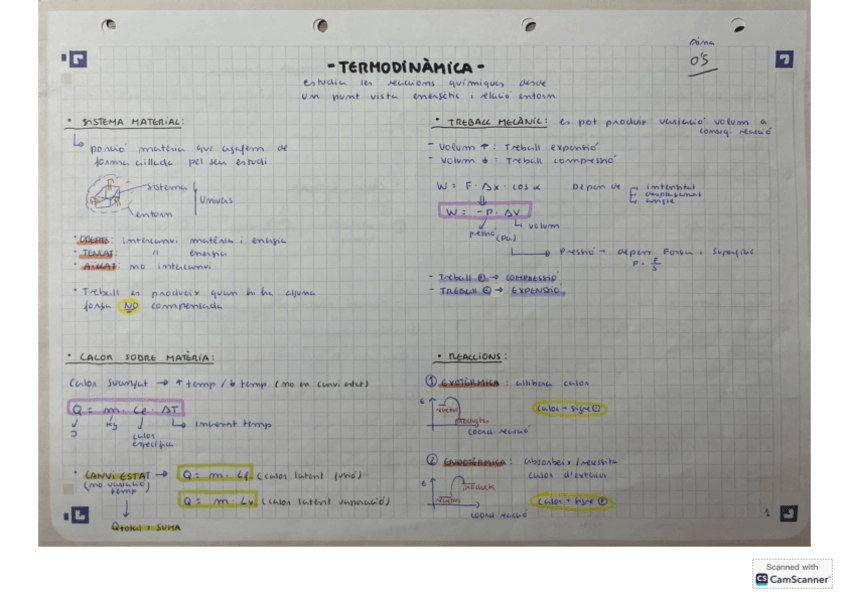 Aina
0'5
- TERMODINÀMICA -
estudia les reaccions químiques desde
un punt vista energètic i relació entorn
• SISTEMA MATERIAL:
↳ porció matèria que agafem de
forma aïllada pel seu estudi
sistema
entorn
Univers
• OBERT: intercanvi matèria i energia
• TANCAT: " energia
• AÏLLAT: no intercanvi
• Treball es produeix quan hi ha alguna
força NO compensada
• TREBALL MECÀNIC: es pot produir variació volum a
conseq. reacció
- Volum ↑ : Treball expansió
- Volum ↓ : Treball compressió
W = F · Δx · cos α Depen de intensitat
desplaçament
angle
W = -P · ΔV
↳ volum
pressió
(Pa)
Pressió → depen Força i Superfície
P = F/S
- Treball ⊕ → COMPRESSIÓ
- TREBALL ⊖ → EXPENSIÓ
• CALOR SOBRE MATÈRIA:
Calor → ↑ temp / ↓ temp (no en canvi estat)
Q = m · Ce · ΔT
J
Kg
calor
específica
↳ increment temp
• CANVI ESTAT → Q = m · Lf (calor latent fusió)
(no variació
temp)
Q = m · Lv (calor latent)
Qtotal = SUMA
• REACCIONS:
① EXOTÈRMICA : allibera calor
E
reactius
productes
coord. reacció
calor → signe ⊖
② ENDOTÈRMICA : absorbeix / necessita
calor d'exterior
E
productes
reactius
coord. reacció
calor → signe ⊕
1
Scanned with
CS CamScanner